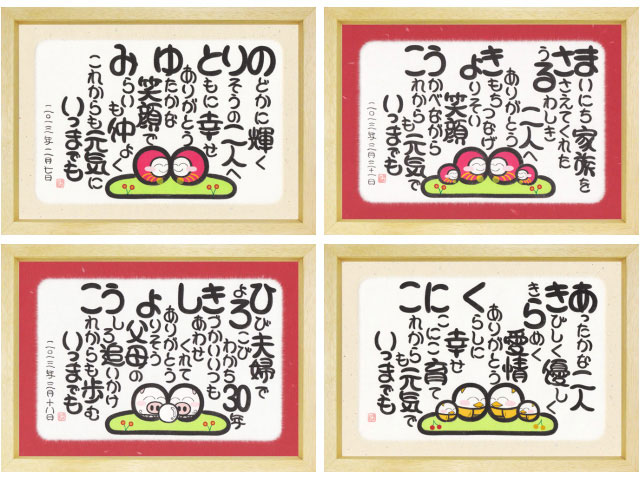 のどかに輝く
りそうの二人へ
ともに幸せ
ありがとう
ゆたかな
笑顔で
みらいも仲よく
これからも元気に
いつまでも
二〇一三年二月七日
まいにち家族を
ささえてくれた
うるわしき
二人へ
ありがとう
きもちつなげ
よりそい
笑顔
うかべながら
これからも元気で
いつまでも
ひび夫婦で
よろこび
わかち30年
きづかいつつ
しあわせ
くれて
ありがとう
よりそう
父母の
うしろ追いかけ
これからも歩む
いつまでも
二〇一三年三月十八日
あったかな二人
きびしく優しく
きらめく
愛情
ありがとう
くらしに
幸せ
にこにこ育て
これからも元気で
いつまでも